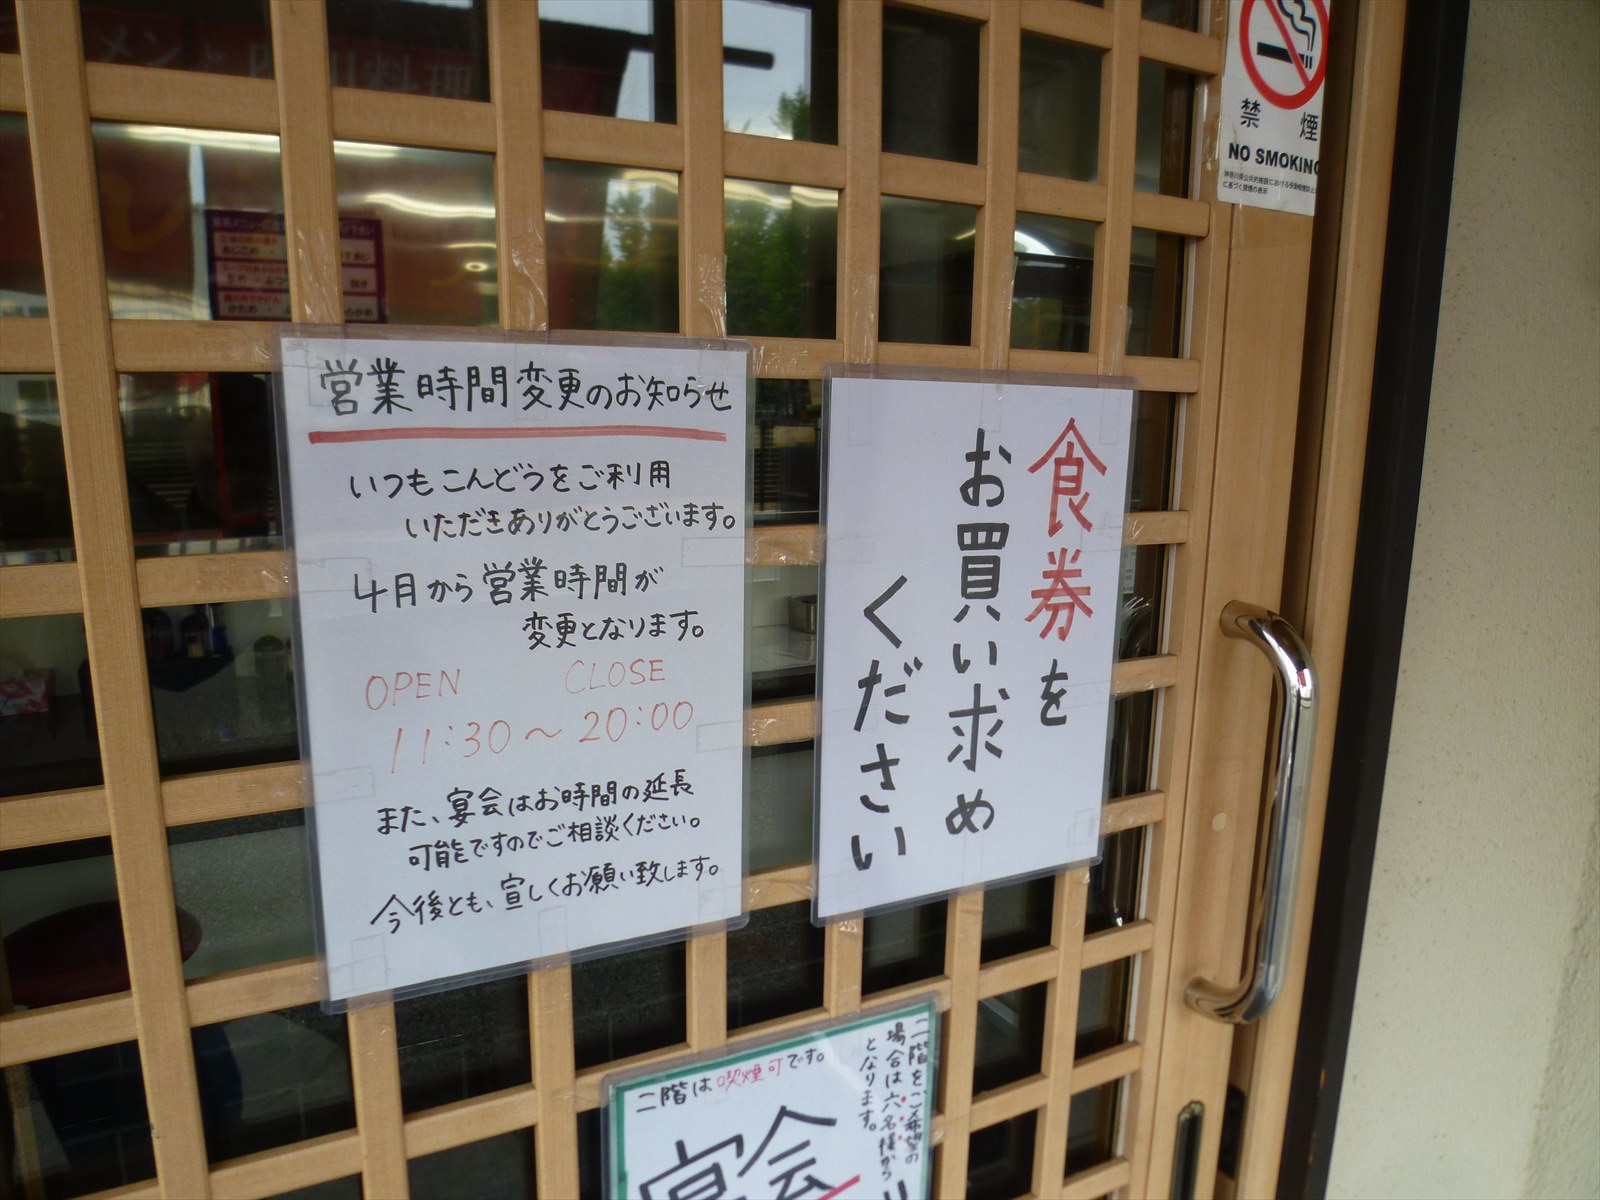 営業時間変更のお知らせ
いつもこんどうをご利用
いただきありがとうございます。
4月から営業時間が
変更となります。
OPEN CLOSE
11:30～20:00
また、宴会はお時間の延長
可能ですのでご相談ください。
今後とも、宜しくお願い致します。
食券を
お買い求め
ください
禁煙
NO SMOKING
二階は喫煙可です。
宴会
二階をご希望の
場合は六名様から
となります。
料理
あじこめ
かため